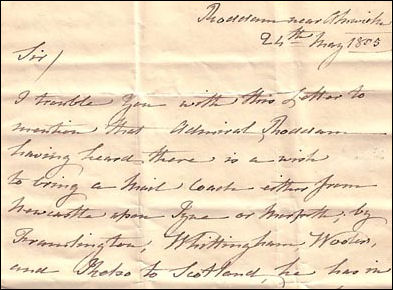 Roddam near Alnwick
24th May 1805
Sir/
I trouble You with this Letter to
mention that Admiral Roddam
having heard there is a wish
to bring a Mail Coach either from
Newcastle upon Tyne or Morpeth, by
Framlington, Whittingham, Wooler,
and Kelso to Scotland, he has in